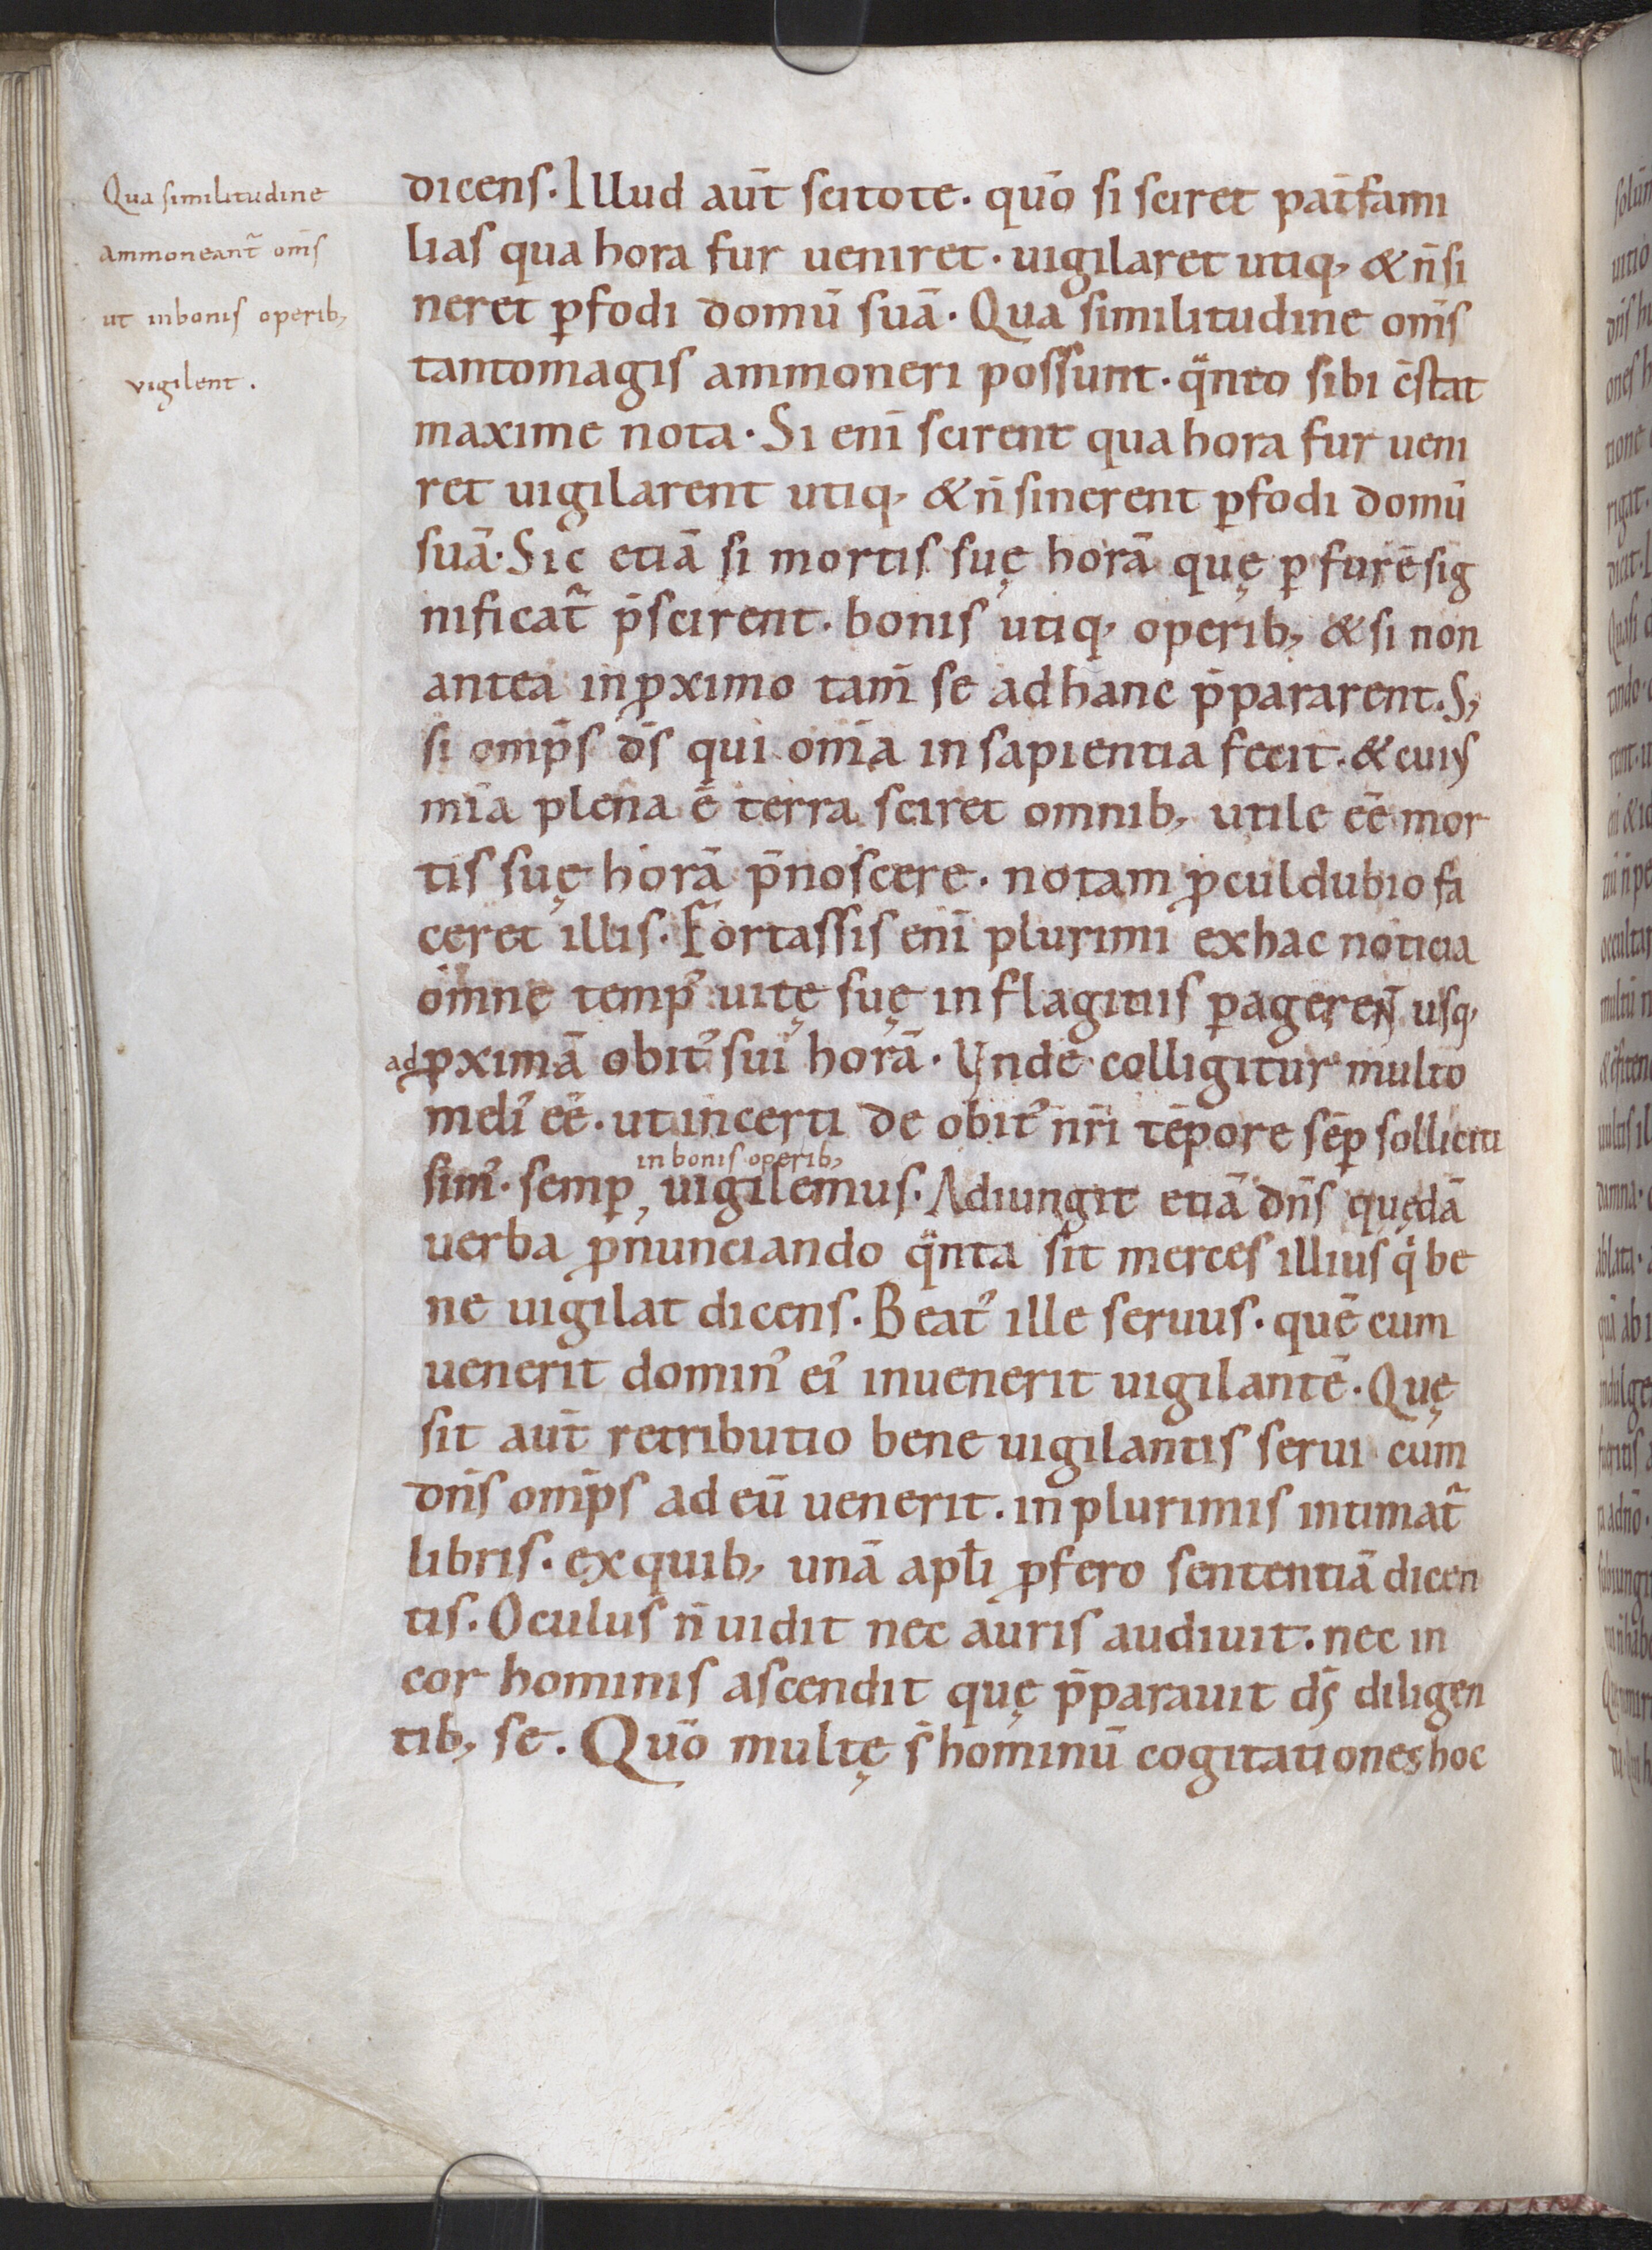 Qua similitudine
ammoneant᷑ om̄s
ut inbonis operib;
vigilent.
dicens. Illud aut̄ scitote. quō si sciret pat̄fami
lias qua hora fur ueniret. uigilaret utiq; & n̄ si
neret ꝑfodi domū suā. Qua similitudine om̄s
tantomagis ammoneri possunt. qͣnto sibi c̄stat
maxime nota. Si eni̅ scirent qua hora fur ueni
ret uigilarent utiq; & n̄ sinerent ꝑfodi domū
suā. Sic etiā si mortis suę horā quę ꝑ furē sig
nificat᷑ p̄scirent. bonis utiq; operib; & si non
antea inꝓximo tam̄ se adhanc p̄pararent. S;
si omp̄s d̄s qui om̄a in sapientia fecit. & cuiꝰ
mīa plena ē terra sciret omnib; utile eē mor
tis suę horā p̄noscere. notam ꝓculdubio fa
ceret illis. Fortassis eni̅ plurimi exhac noticia
omne tempꝰ uitę suę in flagitiis ꝑagerent᷑ usq;
adꝓximā obitꝰ sui horā. Unde colligitur multo
meliꝰ eē. ut incerti de obitꝰ nr̄i tēpore sēꝑ solliciti
simꝰ. semꝑ, uigilemus. Adiungit etiā dn̄s quędā
in bonis operib;
uerba ꝓnunciando qͣnta sit merces illius qͥ be
ne uigilat dicens. Beatꝰ ille seruus. quē cum
uenerit dominꝰ eiꝰ inuenerit uigilantē. Quę
sit aut̄ retributio bene uigilantis serui cum
dn̄s omp̄s ad eū uenerit. in plurimis intimat᷑
libris. ex quib; unā apl̄i ꝓfero sententiā dicen
tis. Oculus n̄ uidit nec auris audiuit. nec in
cor hominis ascendit quę p̄parauit ds̄ diligen
tib; se. Quō multę s̄ hominū cogitationes hoc